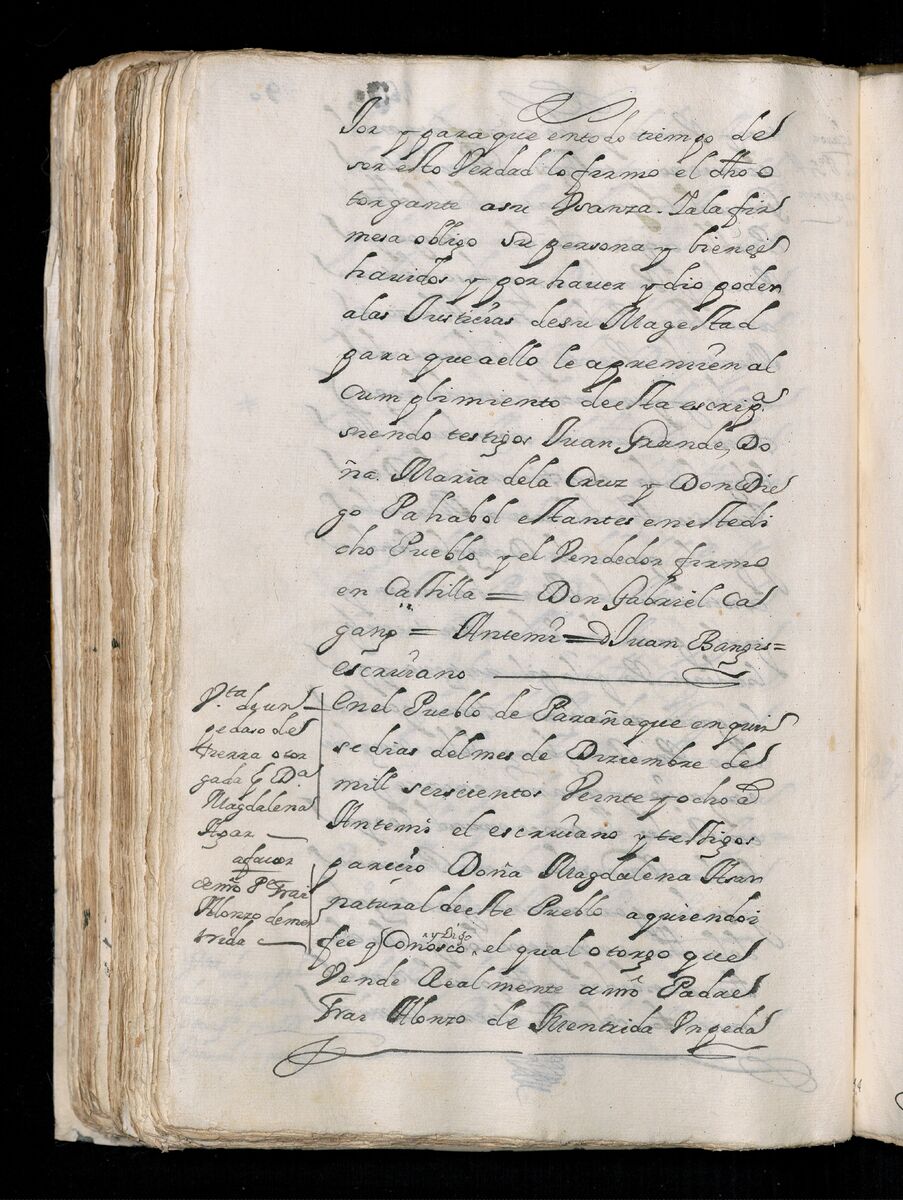 Ior y para que entodo tiempo de
ser esto Verdad lo firmo el dho o
torgante asu Vsanza. Iala fir
mesa obligo su persona y bienes
hauidos y por hauer y dio poder
alas Justicias desu Magestad
para que aello le apremien al
Cumplimiento deesta escripa
siendo testigos Juan Grande, Do
ña Maria dela Cruz y Don Die
go Pahabol estantes eneste di
cho Pueblo y el Vendedor firmo
en Castilla = Don Gabriel Ca
gang = Antemi = D Juan Bangis =
escriuano
Vta de un
pedaso de
tierra otor
gada q Da
Magdalena
Asar
afauor
de mro Pe Frai
Alonzo de men
trida
Enel Pueblo de Parañaque en quin
se dias del mes de Diziembre de
mill seiscientos Veinte y ocho as
Antemi el escriuano y testigos
parecio Doña Magdalena Asar
natural deeste Pueblo a quiendoi
fee q Conosco y Digo el qual otorgo que
Vende Real mente a mro Padre
Frai Alonzo de Mentrida Vn peda